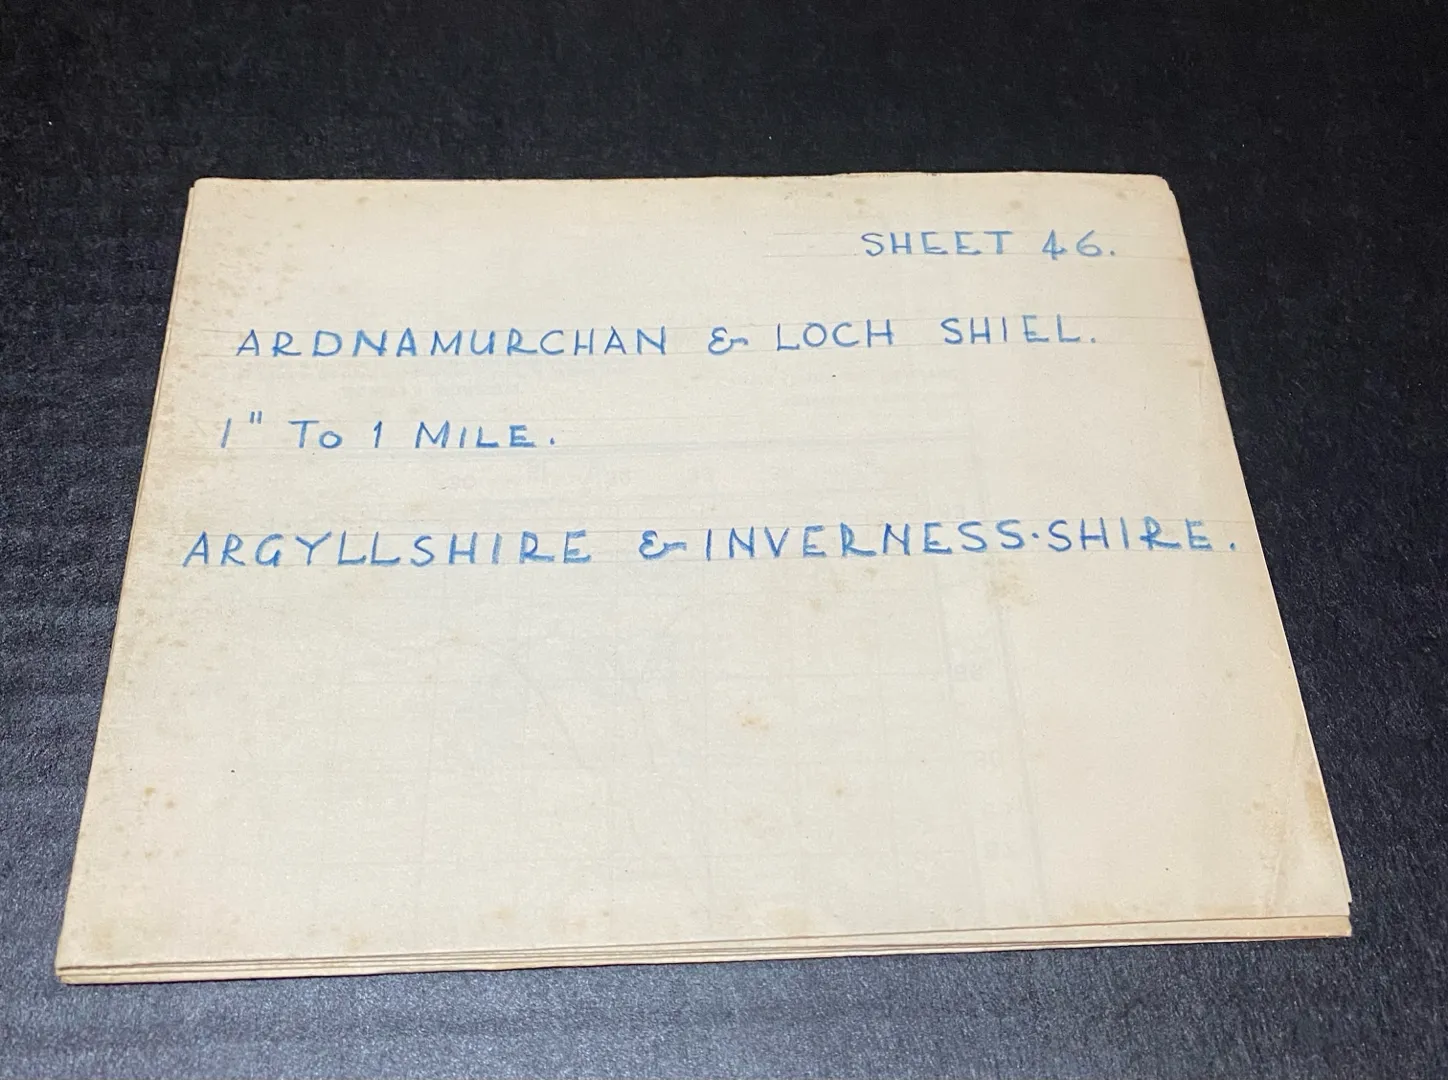 SHEET 46.
ARDNAMURCHAN & LOCH SHIEL.
1" TO 1 MILE.
ARGYLLSHIRE & INVERNESS·SHIRE.